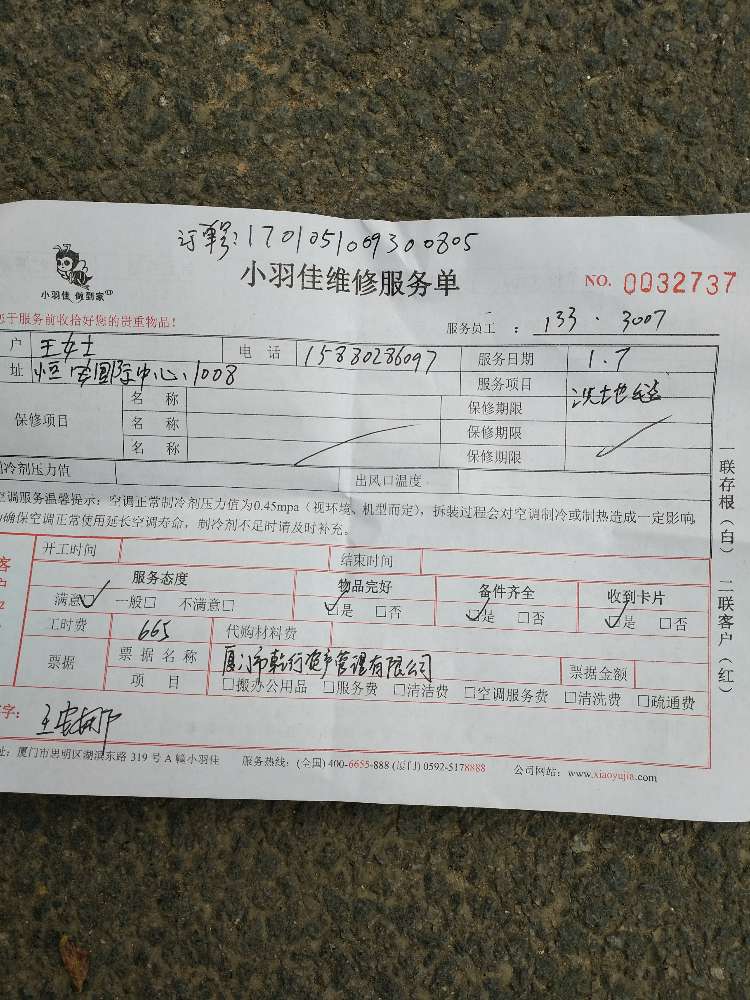 订单号:170105109300805
小羽佳 做到家
小羽佳维修服务单
NO. 0032737
于服务前收拾好您的贵重物品!
服务员工 : 133 . 3007
户 王女士 电 话 15880286097 服务日期 1.7
址 国际中心.1008 服务项目 洗地毯
保修项目
名 称 保修期限
名 称 保修期限
名 称 保修期限
冷剂压力值 出风口温度
空调服务温馨提示:空调正常制冷剂压力值为0.45mpa(视环境、机型而定),拆装过程会对空调制冷或制热造成一定影响,
确保空调正常使用延长空调寿命,制冷剂不足时请及时补充。
客户
开工时间 结束时间
服务态度 物品完好 备件齐全 收到卡片
满意☑ 一般□ 不满意□ ☑是 □否 ☑是 □否 ☑是 □否
工时费 665 代购材料费
票据 票据名称 厦门市乾行资产管理有限公司 票据金额
项 目 □搬办公用品 □服务费 □清洁费 □空调服务费 □清洗费 □疏通费
字:
址:厦门市思明区湖滨东路 319 号 A 幢小羽佳 服务热线:(全国)400-6655-888 (厦门) 0592-5178888 公司网站:www.xiaoyujia.com
一联存根(白) 二联客户(红)